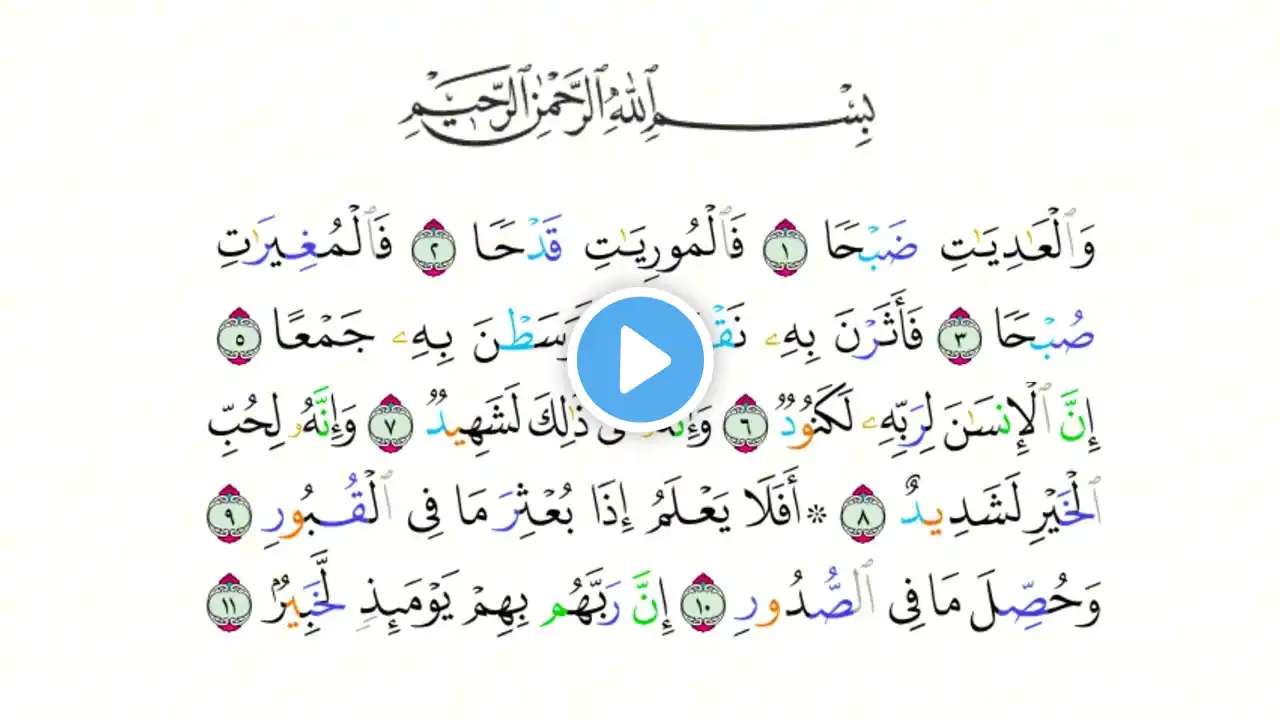 بِسْمِ ٱللَّهِ ٱلرَّحْمَٰنِ ٱلرَّحِيمِ
وَٱلْعَٰدِيَٰتِ ضَبْحًا ١ فَٱلْمُورِيَٰتِ قَدْحًا ٢ فَٱلْمُغِيرَٰتِ
صُبْحًا ٣ فَأَثَرْنَ بِهِۦ بِهِۦ جَمْعًا ٥
إِنَّ ٱلْإِنسَٰنَ لِرَبِّهِۦ لَكَنُودٌ ٦ ذَٰلِكَ لَشَهِيدٌ ٧ وَإِنَّهُۥ لِحُبِّ
ٱلْخَيْرِ لَشَدِيدٌ ٨ ۞ أَفَلَا يَعْلَمُ إِذَا بُعْثِرَ مَا فِى ٱلْقُبُورِ ٩
وَحُصِّلَ مَا فِى ٱلصُّدُورِ ١٠ إِنَّ رَبَّهُم بِهِمْ يَوْمَئِذٍ لَّخَبِيرٌۢ ١١